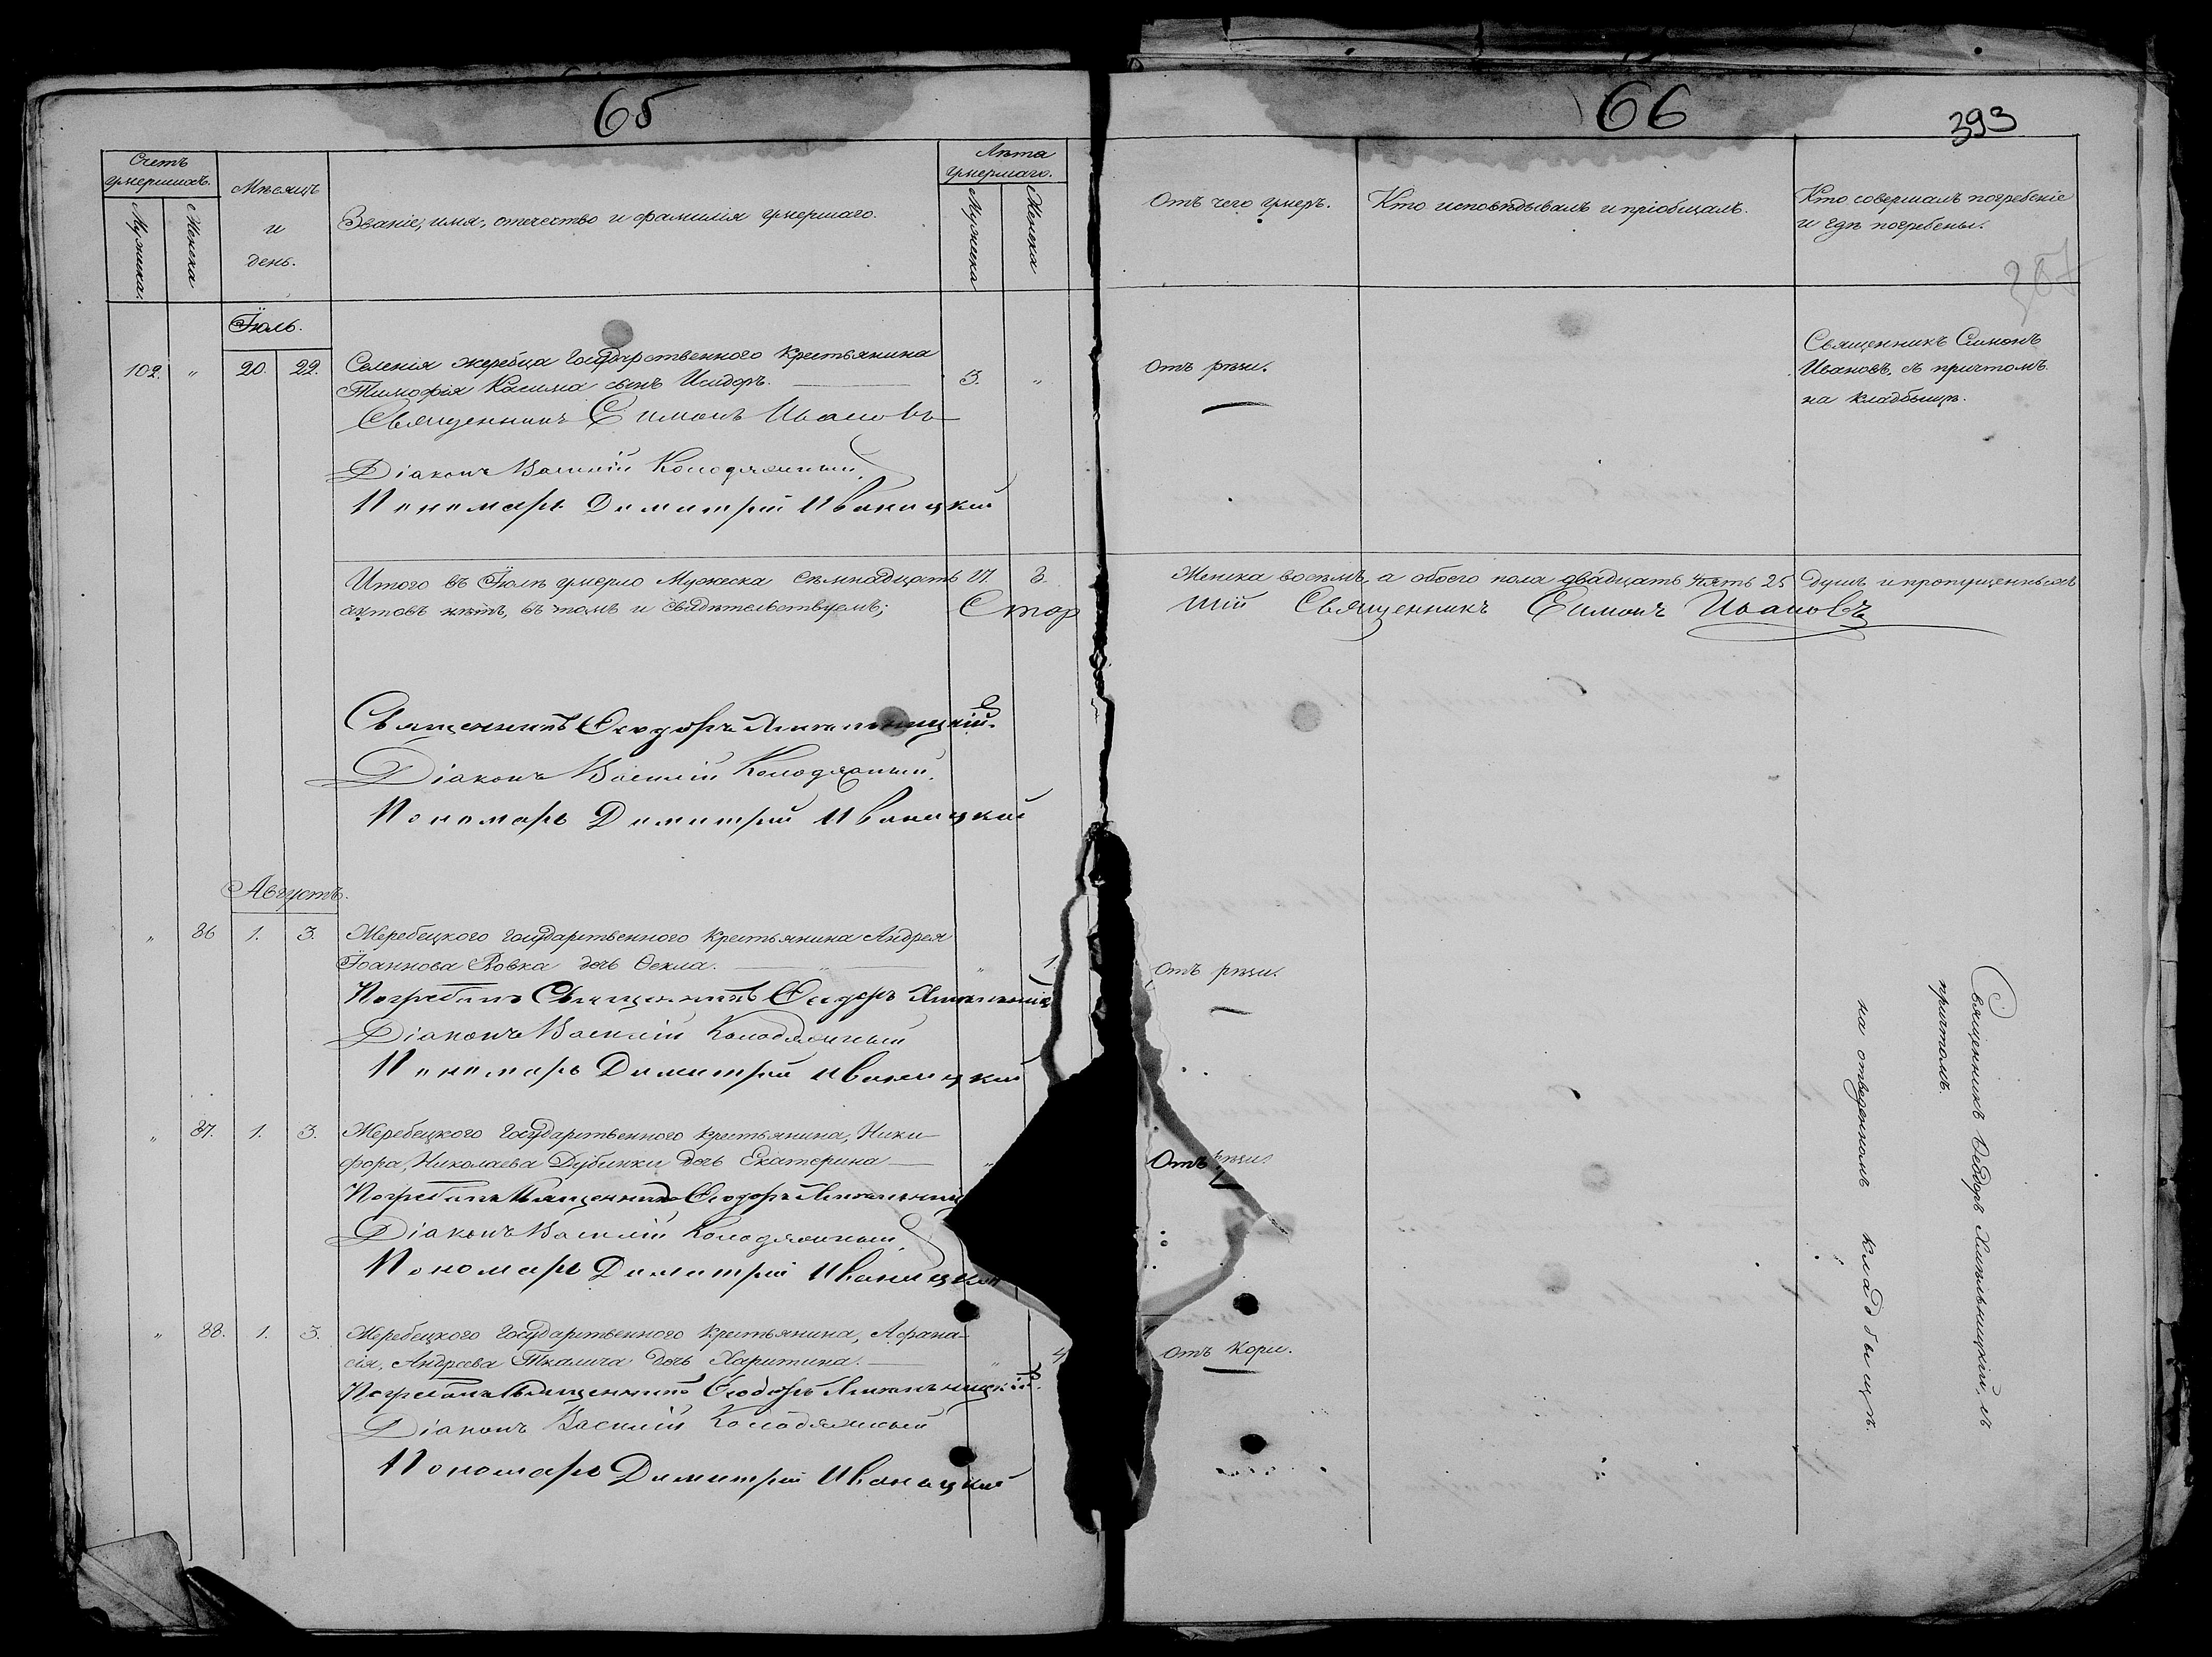 65
66
393
Счетъ умершихъ.
Мужска.
Женска
Мѣсяцъ и день.
Званіе, имя, отечество и фамилія умершаго.
Лѣта умершаго.
Мужска
Женска
Отъ чего умеръ.
Кто исповѣдывалъ и пріобщалъ.
Кто совершалъ погребеніе
и гдѣ погребены.
Іюль.
102. " 20. 22. Селенія жеребца Государственного Крестьянина
Тимофія Касима сынъ Исидоръ. 3. "
Отъ рѣзи.
Священникъ Симонъ
Ивановъ, съ причтомъ
на кладбыщѣ.
Священникъ Симонъ Ивановъ
Діаконъ Василій Колодяжный
Пономарь Димитрій Иваницкій
Итого въ Іюлѣ умерло Мужеска семнадцать 17. 8. Женска восемъ, а обоего пола двадцать пять 25 душъ и пропущенныхъ
актовъ нѣтъ, въ томъ и свидѣтельствуемъ; Стар шій Священникъ Симонъ Ивановъ
Священникъ Ѳеодоръ Хмѣльницкій.
Діаконъ Василій Колодяжный.
Пономарь Димитрій Иваницкій
Августъ.
" 86 1. 3. Жеребецкого Государственного Крестьянина Андрея
Іоаннова Вовка дочь Ѳекла. " 1.
Отъ рѣзи.
Погребалъ Священникъ Ѳеодоръ
Діаконъ Василій Колодяжный
Пономарь Димитрій Иваницкій
" 87. 1. 3. Жеребецкого Государственного крестьянина, Ники-
фора, Николаева Дубинки дочь Екатерина
Отъ рѣзи.
Погребалъ Священникъ Ѳеодоръ
Діаконъ Василій Колодяжный
Пономарь Димитрій Иваницкій
" 88. 1. 3. Жеребецкого Государственного Крестьянина, Афана-
сія, Андреева Ткалича дочь Харитина. " 4
Отъ Кори.
Погребалъ Священникъ Ѳеодоръ Хмѣльницкій.
Діаконъ Василій Колодяжный
Пономарь Димитрій Иваницкій
Священникъ Ѳеодоръ Хмѣльницкій, съ
причтомъ.
на отведенномъ кладбыщѣ.